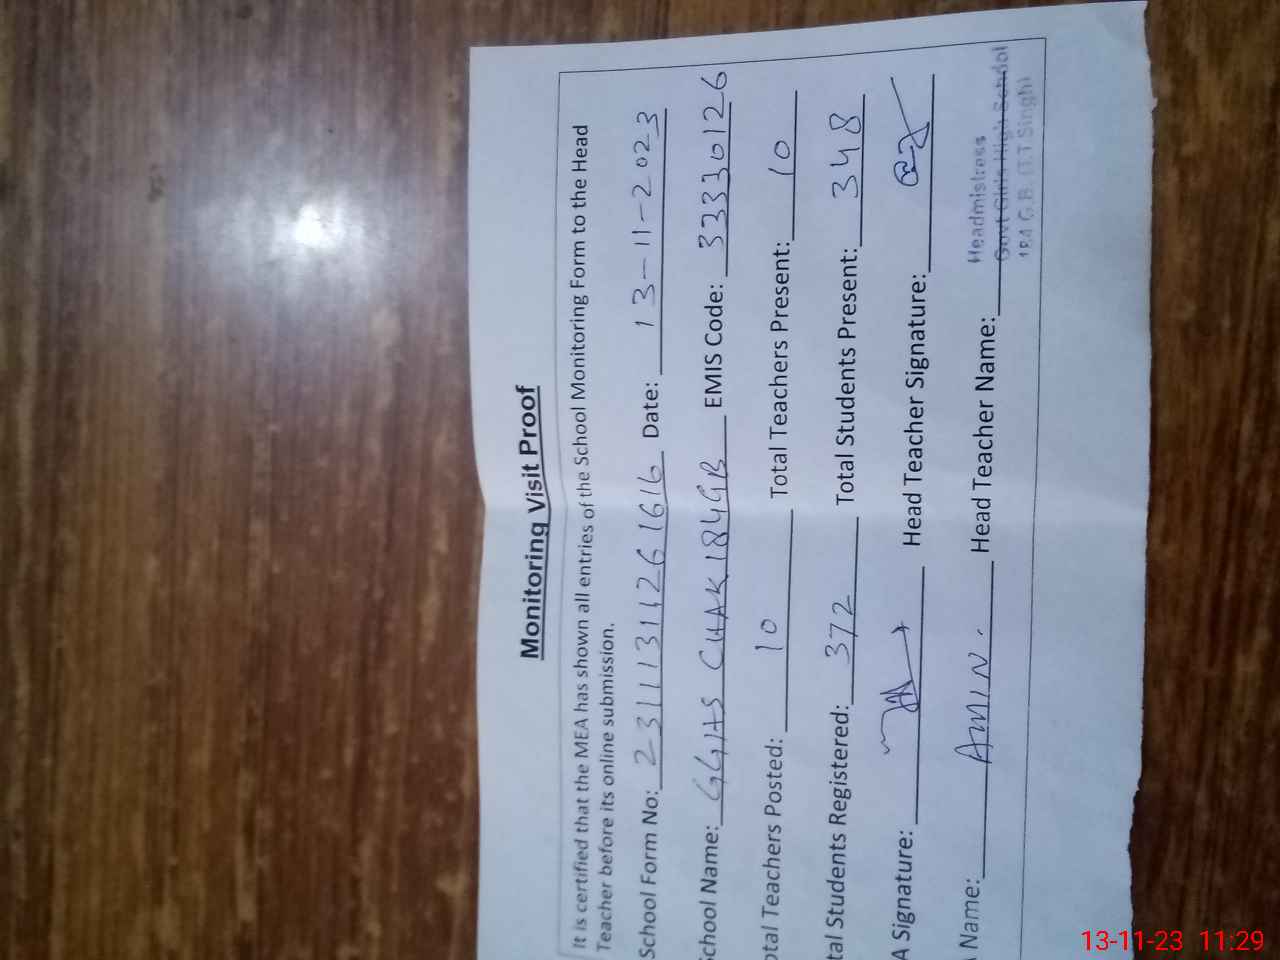 Monitoring Visit Proof
It is certified that the MEA has shown all entries of the School Monitoring Form to the Head
Teacher before its online submission.
School Form No: 23111311261616 Date: 13-11-2023
School Name: GGHS CHAK 184GB EMIS Code: 33330126
otal Teachers Posted: 10 Total Teachers Present: 10
tal Students Registered: 372 Total Students Present: 348
A Signature: Head Teacher Signature:
Name: AMIN. Head Teacher Name:
Headmistress
Govt Girls High School
184 G.B. (T.T Singh)
13-11-23 11:29